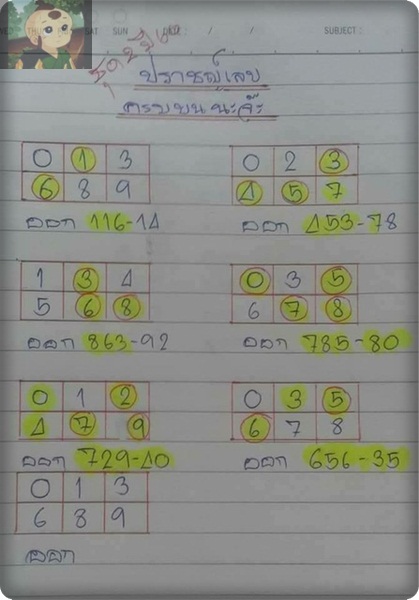 SAT SUN / / SUBJECT :
ปราชญ์เลข
ครบบนนะจ๊ะ
0 1 3
6 8 9
ออก 116-14
0 2 3
4 5 7
ออก 453-78
1 3 4
5 6 8
ออก 863-92
0 3 5
6 7 8
ออก 785-80
0 1 2
4 7 9
ออก 729-40
0 3 5
6 7 8
ออก 656-35
0 1 3
6 8 9
ออก